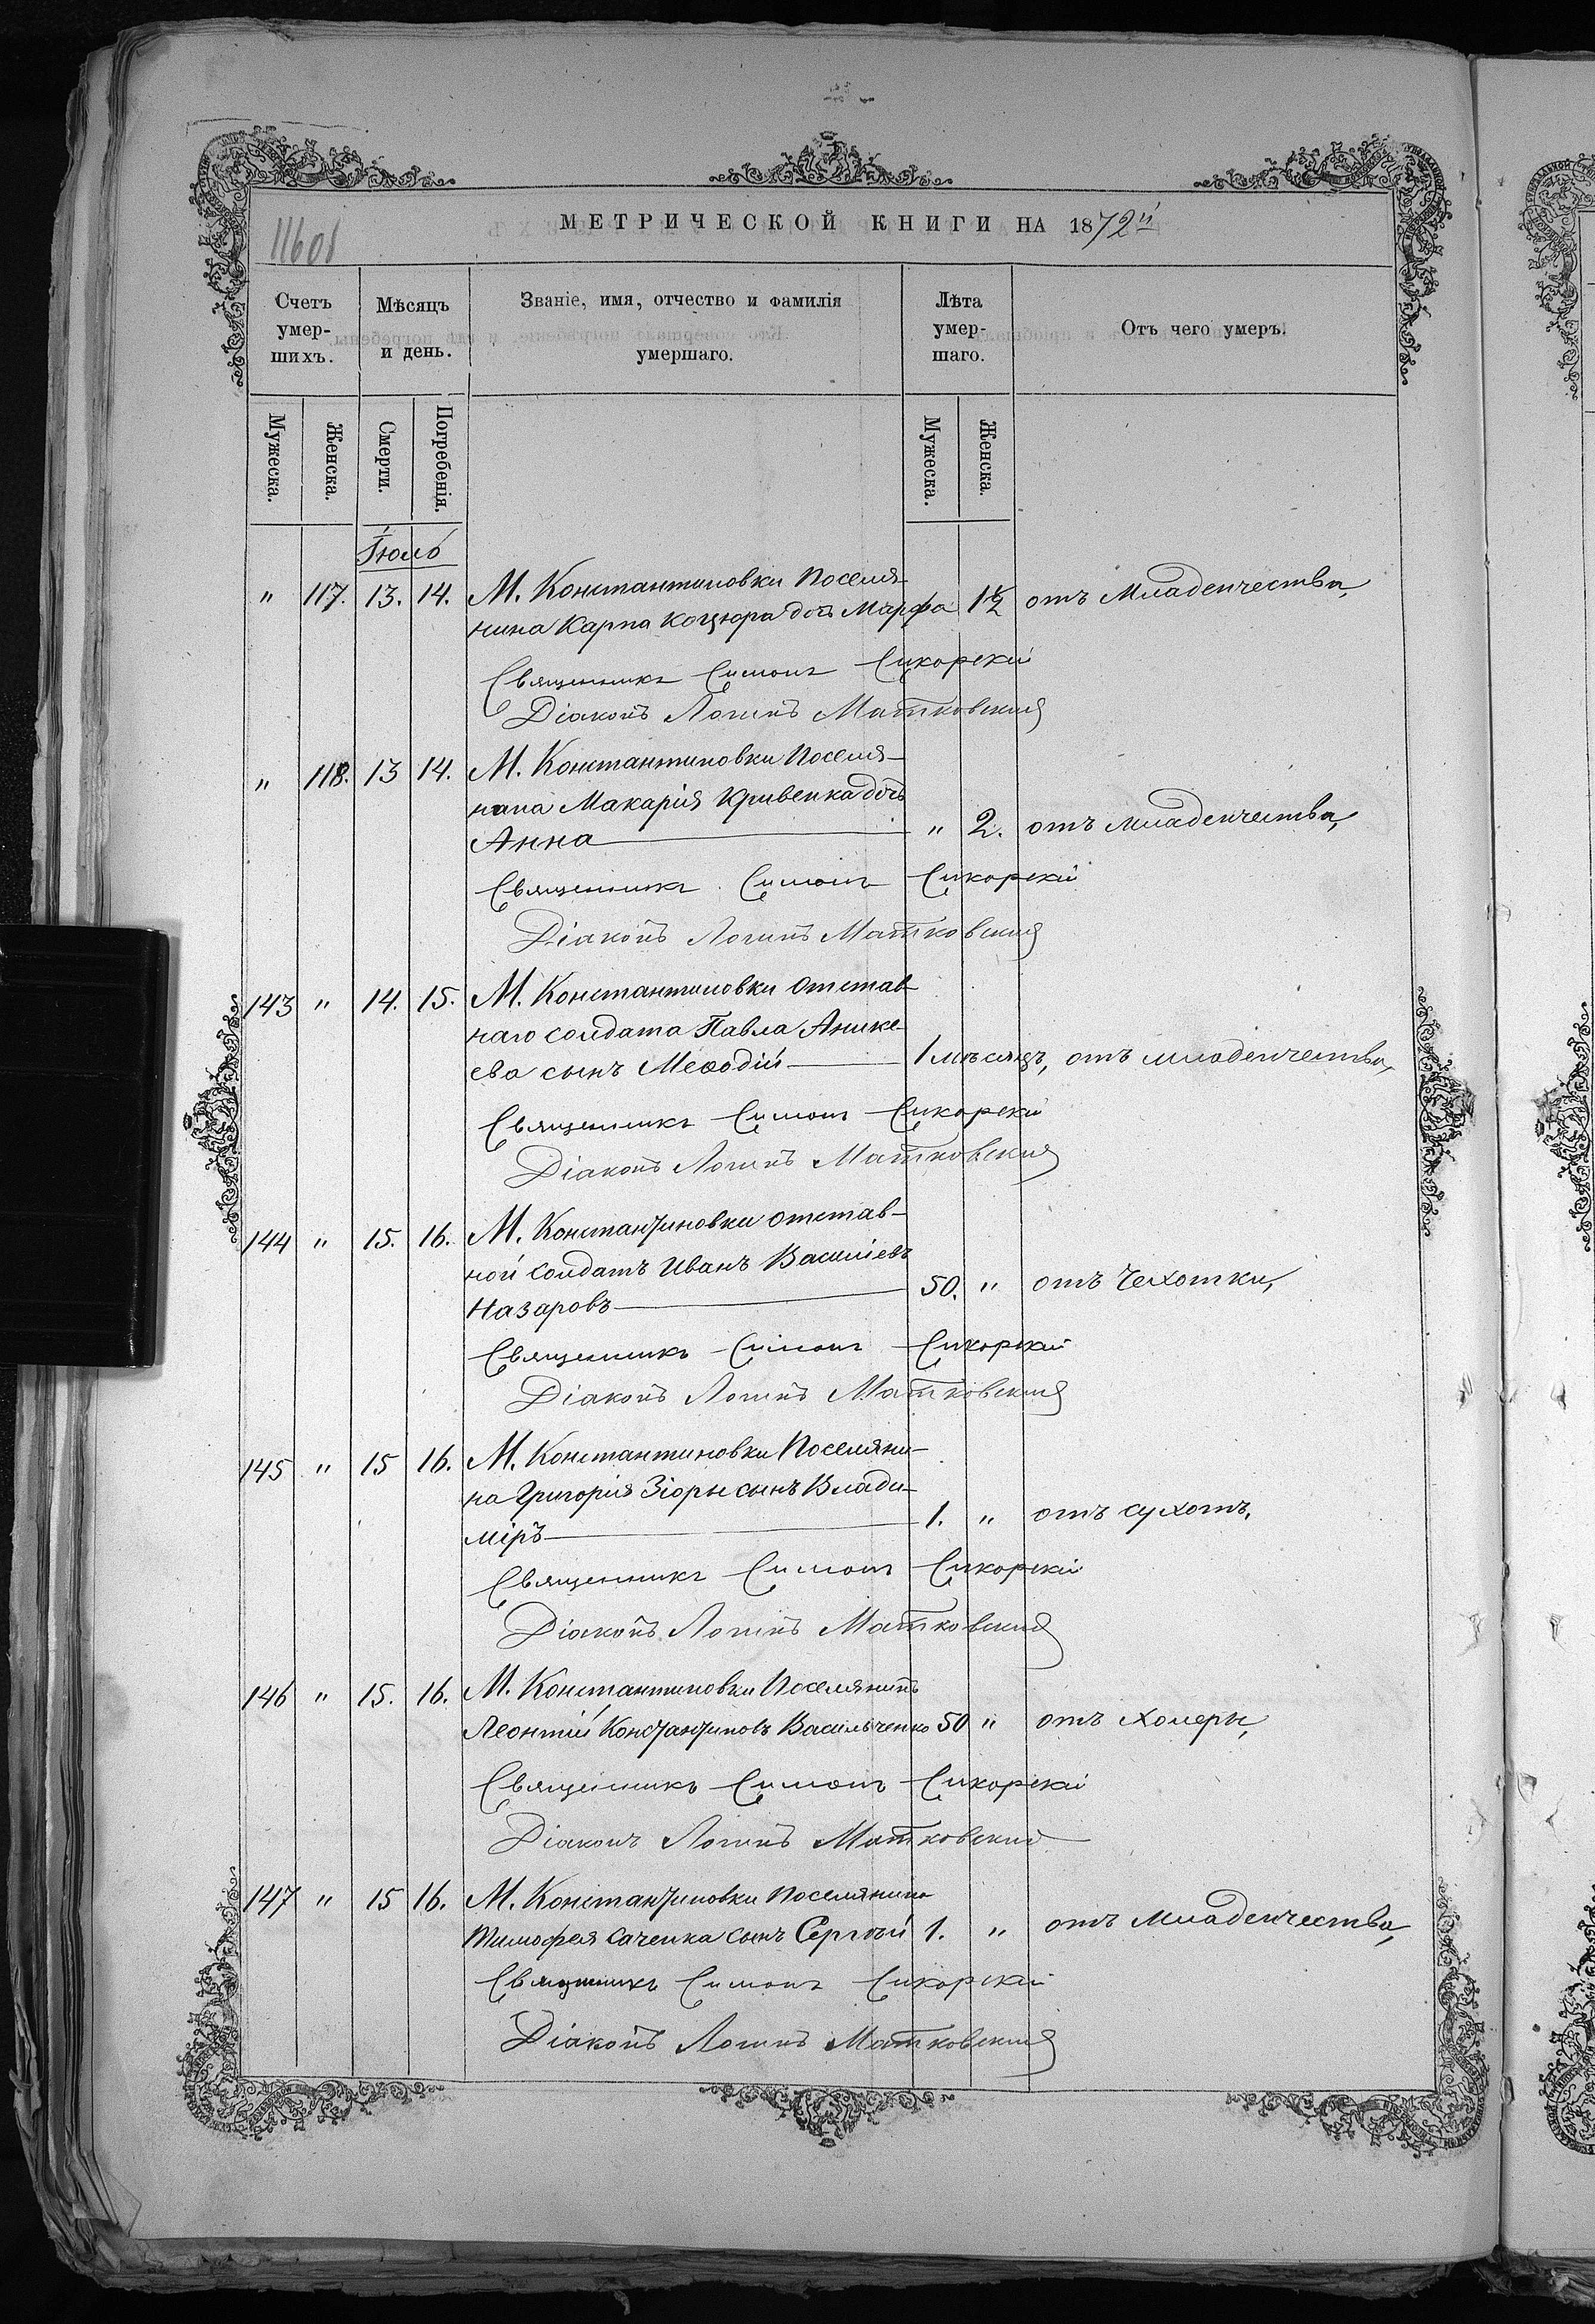 МЕТРИЧЕСКОЙ КНИГИ НА 1872й
Счетъ умер-шихъ. Мѣсяцъ и день. Званіе, имя, отчество и фамилія умершаго. Лѣта умер-шаго. Отъ чего умеръ.
Мужеска. Женска. Смерти. Погребенія. Мужеска. Женска.
Іюль
" 117. 13. 14. М. Константиновки поселя-
нина Карпа Коцюра дочь Марфа 1½ отъ младенчества,
Священникъ Симонъ Сикорскій
Діаконъ Логинъ Матковский
" 118. 13 14. М. Константиновки поселя-
нина Макарія Кривенка дочь
Анна " 2. отъ младенчества,
Священникъ Симонъ Сикорскій
Діаконъ Логинъ Матковский
143 " 14. 15. М. Константиновки отстав-
наго солдата Павла Анике-
ева сынъ Меѳодій 1 мѣсяцъ, отъ младенчества,
Священникъ Симонъ Сикорскій
Діаконъ Логинъ Матковский
144 " 15. 16. М. Константиновки отстав-
ной солдатъ Иванъ Василіевъ
Назаровъ 50. " отъ чехотки,
Священникъ Симонъ Сикорскій
Діаконъ Логинъ Матковский
145 " 15 16. М. Константиновки поселяни-
на Григорія Зіоры сынъ Влади-
міръ 1. " отъ сухотъ,
Священникъ Симонъ Сикорскій
Діаконъ Логинъ Матковский
146 " 15. 16. М. Константиновки поселянинъ
Леонтій Константиновъ Васильченко 50 " отъ холеры,
Священникъ Симонъ Сикорскій
Діаконъ Логинъ Матковский
147 " 15 16. М. Константиновки поселянина
Тимофея Саченка сынъ Сергѣй 1. " отъ младенчества,
Священникъ Симонъ Сикорскій
Діаконъ Логинъ Матковский